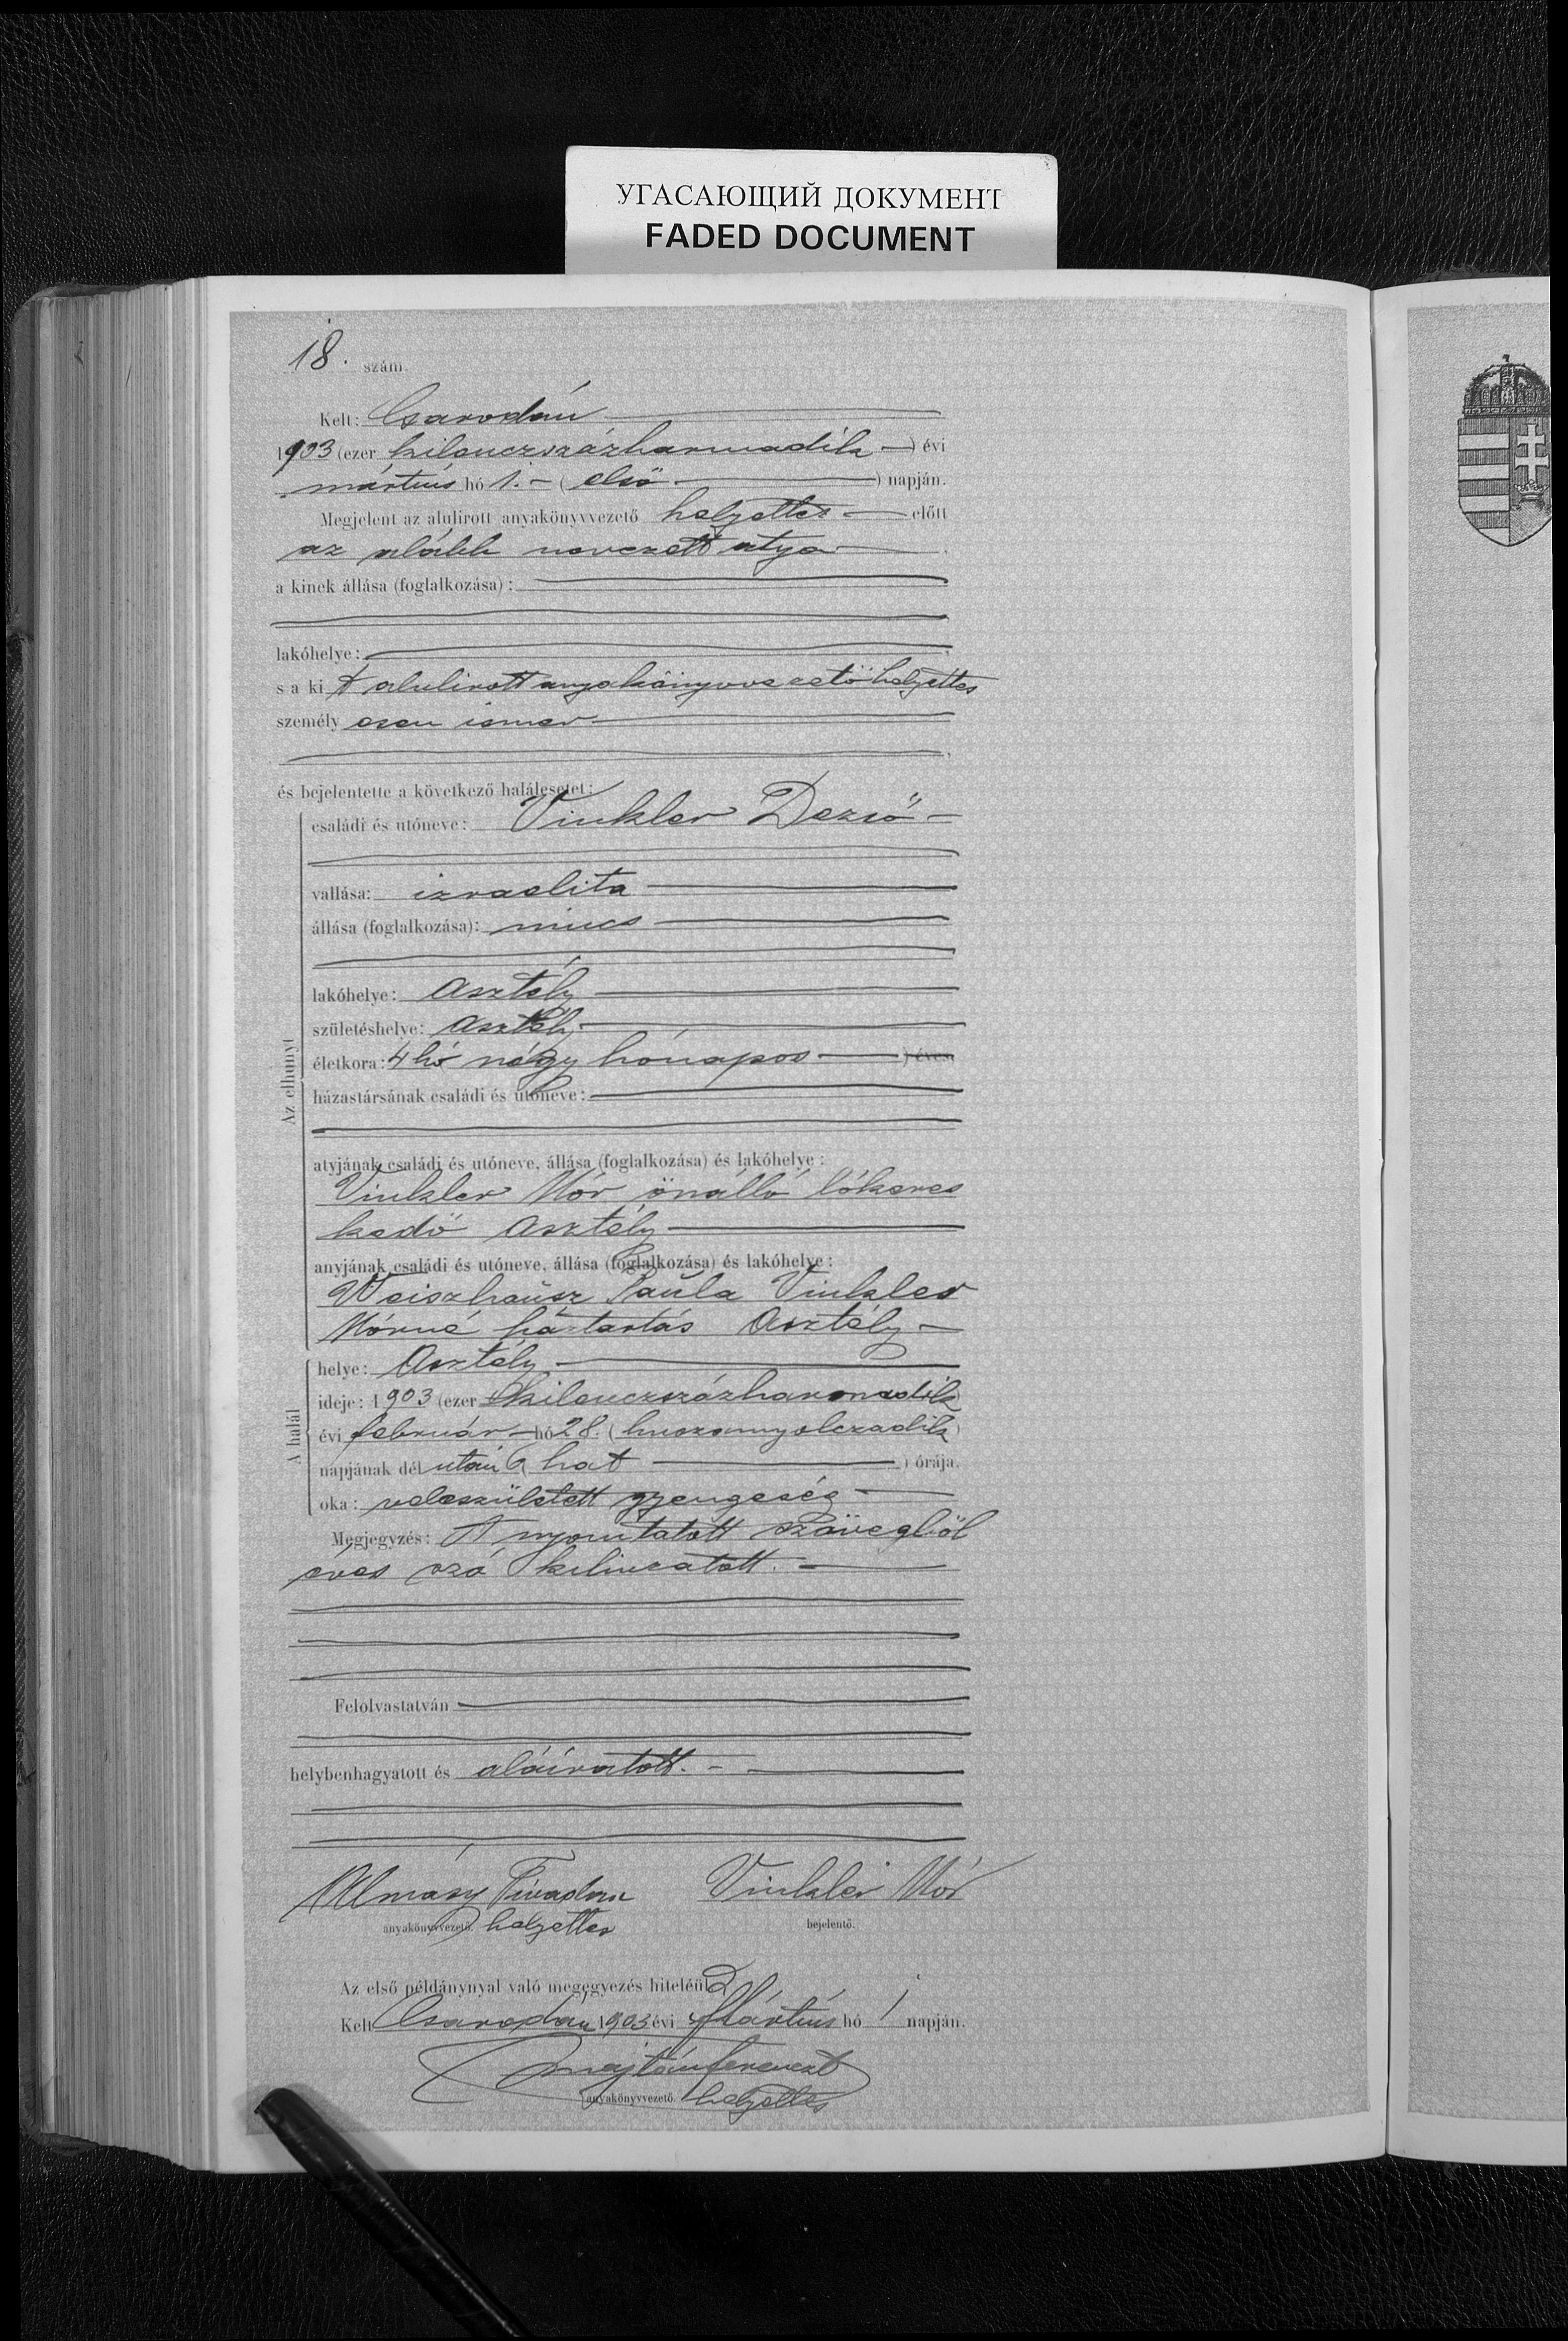 УГАСАЮЩИЙ ДОКУМЕНТ
FADED DOCUMENT
18. szám.
Kelt: Csarodán
1903 (ezer kilenczszázharmadik ) évi
mártius hó 1. – ( első ) napján.
Megjelent az alulirott anyakönyvvezető helyettes előtt
az alább nevezett atya
a kinek állása (foglalkozása):
lakóhelye:
s a ki t alulirott anyakönyvvezető helyettes
személy esen ismer
és bejelentette a következő halálesetet:
családi és utóneve: Vinkler Dezső –
vallása: izraelita
állása (foglalkozása): nincs
lakóhelye: Asztély
születéshelye: Asztély
életkora: 4 hó négy hónapos ) éves.
Az elhunyt
házastársának családi és utóneve:
atyjának családi és utóneve, állása (foglalkozása) és lakóhelye:
Vinkler Mór önálló lókeres
kedő Asztély
anyjának családi és utóneve, állása (foglalkozása) és lakóhelye:
Weiszhausz Paula Vinkler
Mórné háztartás Asztély –
A halál
helye: Asztély
ideje: 1903 (ezer kilenczszázharmadik
évi február hó 28. ( huszonnyolczadik )
napjának dél után 6 ( hat ) órája.
oka: veleszületett gyengeség
Megjegyzés: A nyomtatott szövegből
éves szó kihuzatott. –
Felolvastatván
helybenhagyatott és aláiratott. –
Almásy Tivadar Vinkler Mór
anyakönyvvezető. helyettes bejelentő.
Az első példánynyal való megegyezés hiteléül
Kelt Csarodán 1903 évi Mártius hó 1 napján.
anyakönyvvezető. helyettes